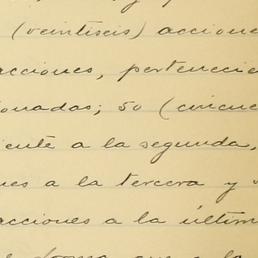 (veintiseis) accione
acciones, pertenecie
onadas; 50 (cincue
iente a la segunda,
es a la tercera y
acciones a la últim
forma que a la